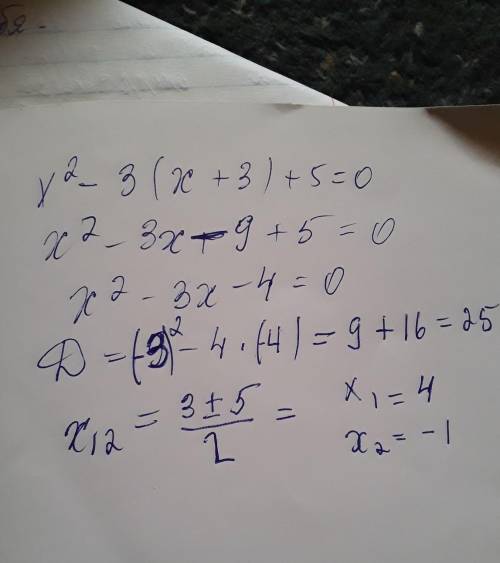 бя.
x² - 3(x + 3) + 5 = 0
x² - 3x - 9 + 5 = 0
x² - 3x - 4 = 0
D = (-3)² - 4 · (-4) = 9 + 16 = 25
x₁₂ = (3 ± 5)/2 = x₁ = 4
x₂ = -1